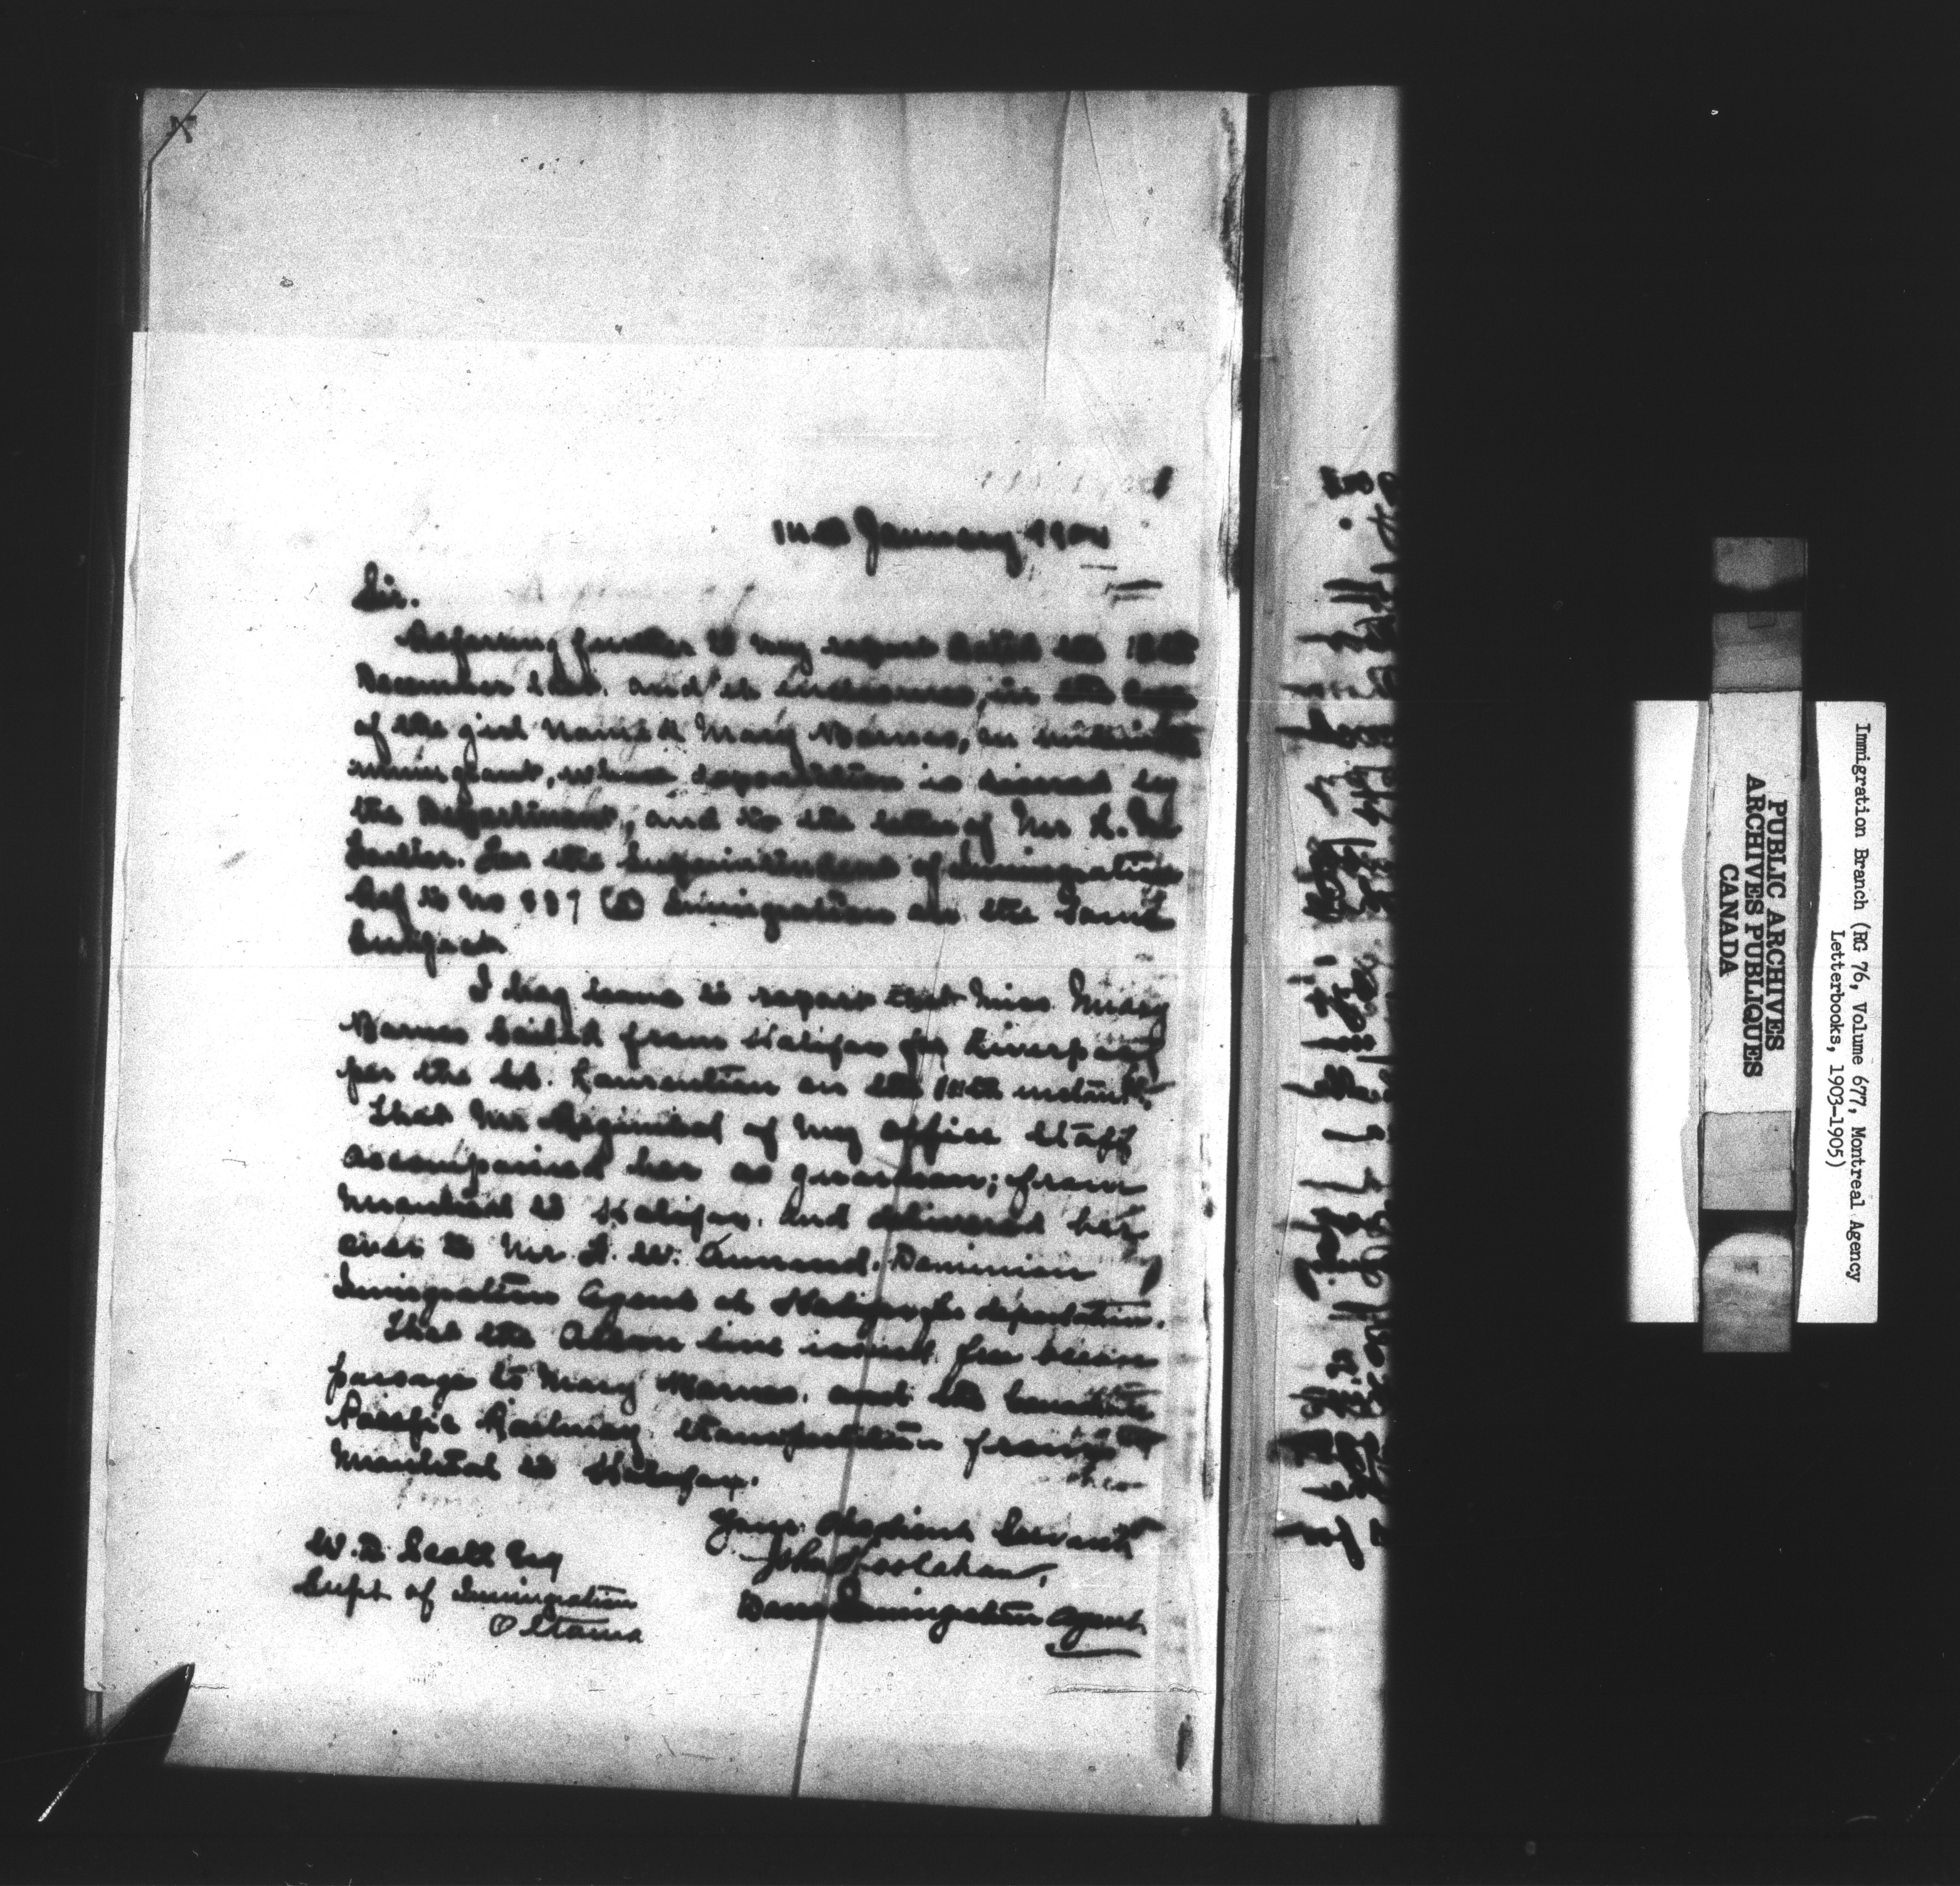 January 1904
Sir.
Referring further to my report dated the 18th
December last. and its enclosures, in the case
of the girl named Mary Barnes, an
immigrant, whose deportation is desired by
the Department, and to the letter of Mr L. M.
Fortier. for the Superintendent of Immigration
Ref to No 337 Immigration on the same
subject.
I beg leave to report that Miss Mary
Barnes sailed from Halifax for Liverpool
per the SS. Laurentian on the 11th instant.
That Mr of my office staff
accompanied her as guardian; from
Montreal to Halifax. and delivered her
over to Mr F. W. Annand. Dominion
Immigration Agent at Halifax for deportation.
That the Allan line issued free ocean
passage to Mary Barnes. and the Canadian
Pacific Railway. transportation from
Montreal to Halifax.
Your Obedient Servant
John Hoolahan,
Dom Immigration Agent
W. D. Scott Esq
Supt of Immigration
Ottawa
PUBLIC ARCHIVES
ARCHIVES PUBLIQUES
CANADA
Immigration Branch (RG 76, Volume 677, Montreal Agency
Letterbooks, 1903-1905)